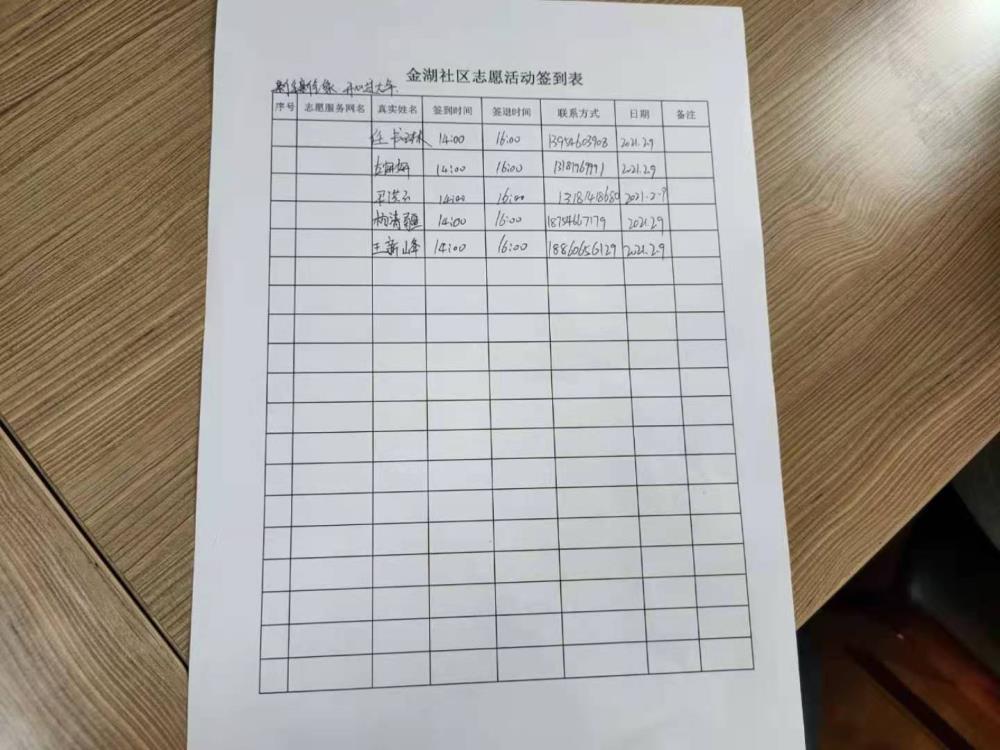 金湖社区志愿活动签到表
开心过大年
序号 志愿服务网名 真实姓名 签到时间 签退时间 联系方式 日期 备注
任 14:00 16:00 13954603908 2021.2.9
14:00 16:00 13187969991 2021.2.9
14:00 16:00 13181418680 2021.2.9
杨清疆 14:00 16:00 18754667179 2021.2.9
王新峰 14:00 16:00 18860656129 2021.2.9